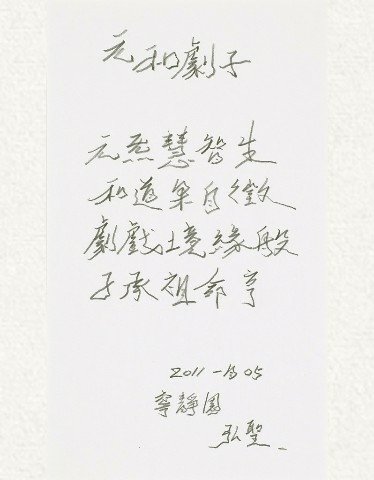 元和劇子
元炁慧智生
和道果自徵
劇戲境緣般
子承祖命亨
2011-1905
寧靜園
弘聖